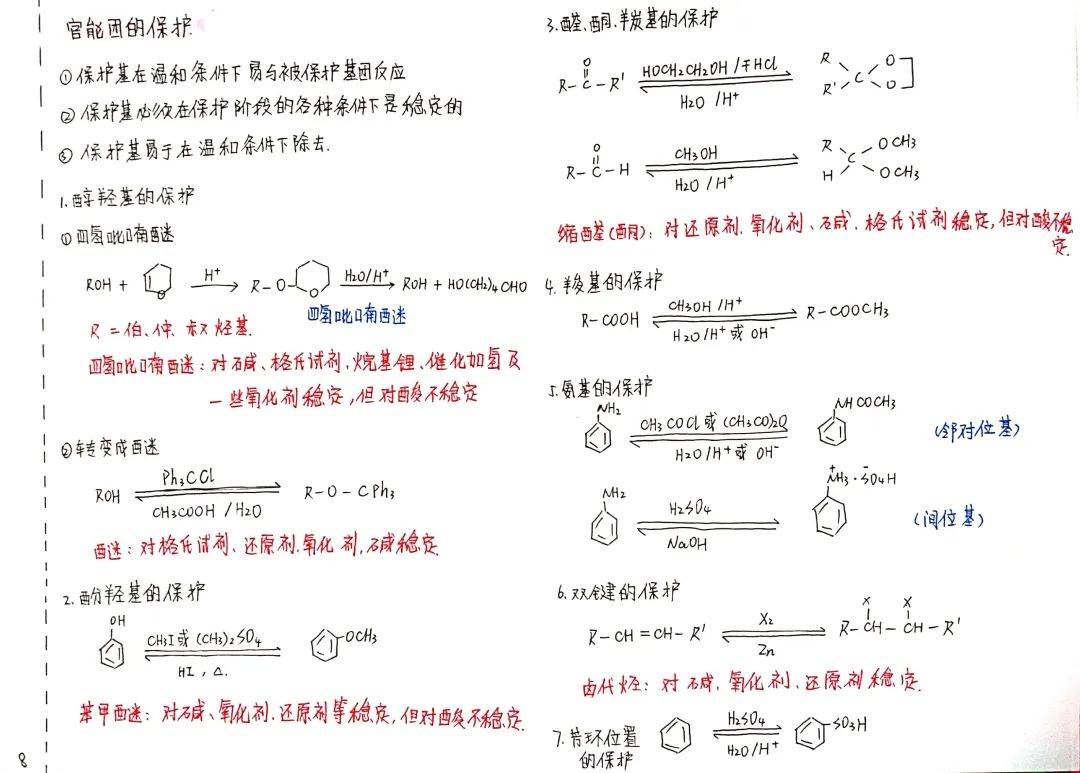 官能团的保护
①保护基在温和条件下易与被保护基团反应
②保护基必须在保护阶段的各种条件下是稳定的
③保护基易于在温和条件下除去.
1.醇羟基的保护
①四氢吡喃醚
ROH + O H⁺ R-O- O H2O/H⁺ ROH + HO(CH2)4CHO
四氢吡喃醚
R = 伯、仲、叔烃基.
四氢吡喃醚：对碱、格氏试剂、烷基锂、催化加氢及
一些氧化剂稳定，但对酸不稳定
②转变成醚
ROH Ph3CCl R-O-CPh3
CH3COOH / H2O
醚：对格氏试剂、还原剂、氧化剂，碱稳定.
2.酚羟基的保护
OH CH3I或(CH3)2SO4 OCH3
HI，△.
苯甲醚：对碱、氧化剂、还原剂等稳定，但对酸不稳定.
8
3.醛、酮、羰基的保护
R-C-R' O HOCH2CH2OH /干HCl R R' C O O
H2O /H⁺
R-C-H O CH3OH R H C OCH3 OCH3
H2O /H⁺
缩醛(酮)：对还原剂、氧化剂、碱、格氏试剂稳定，但对酸不稳
定.
4.羧基的保护
R-COOH CH3OH /H⁺ R-COOCH3
H2O/H⁺或OH⁻
5.氨基的保护
NH2 CH3COCl或(CH3CO)2O NHCOCH3 (邻对位基)
H2O/H⁺或OH⁻
NH2 H2SO4 N⁺H3·⁻SO4H (间位基)
NaOH
6.双键的保护
R-CH=CH-R' X2 R-CH-CH-R' X X
Zn
卤代烃：对碱、氧化剂、还原剂稳定.
7.芳环位置 H2SO4 SO3H
的保护 H2O/H⁺